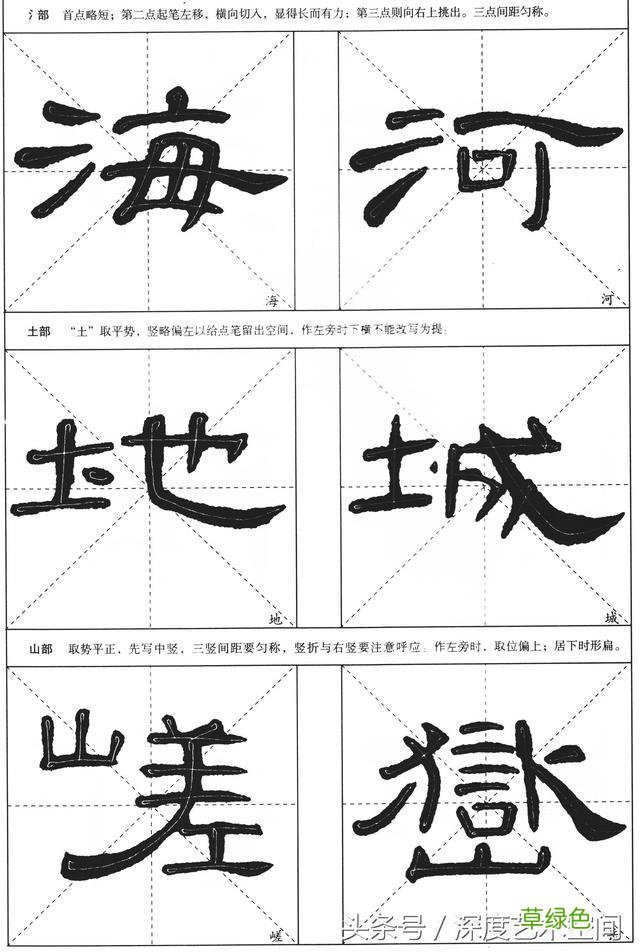 氵部 首点略短；第二点起笔左移，横向切入，显得长而有力；第三点则向右上挑出。三点间距匀称。
海 河
海 河
土部 “土”取平势，竖略偏左以给点笔留出空间，作左旁时下横不能改写为提。
地 城
地 城
山部 取势平正，先写中竖，三竖间距要匀称，竖折与右竖要注意呼应。作左旁时，取位偏上；居下时形扁。
嵯 嶽
嵯
头条号／深度艺术空间
草绿色